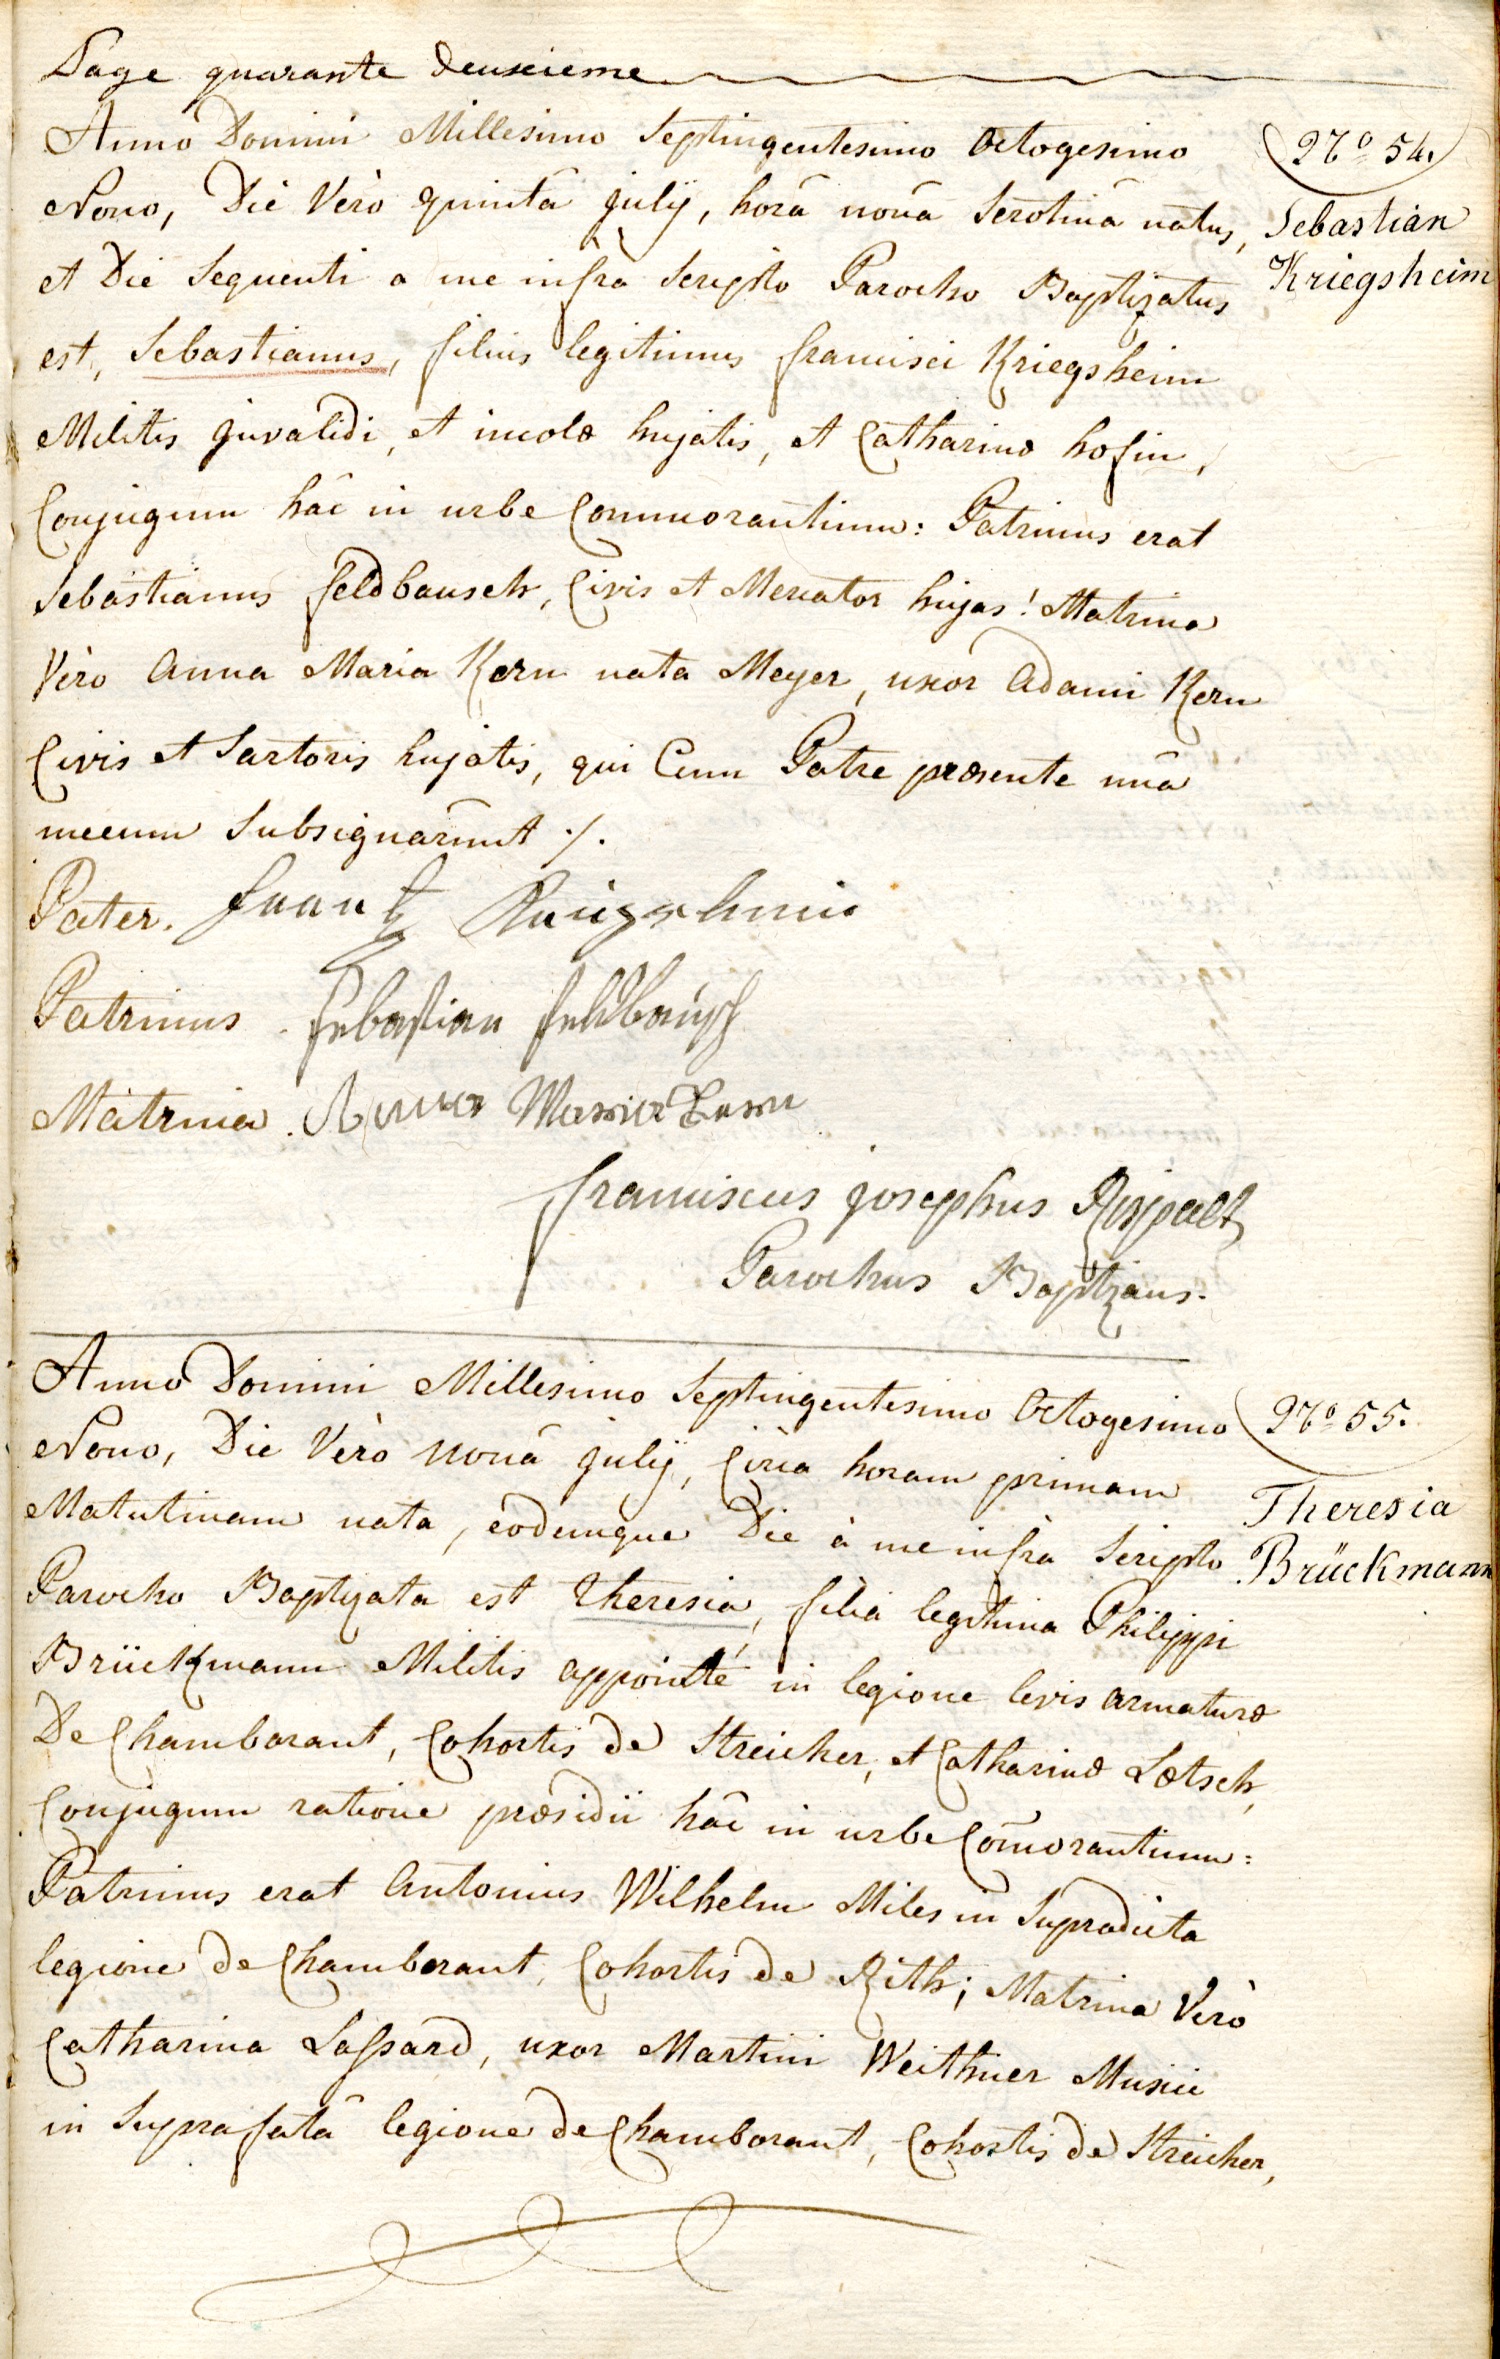 Page quarante deuxieme
Anno Domini Millesimo Septingentesimo Octogesimo
Nono, Die Verò quintâ julij, horâ nonâ Serotinâ natus,
et Die Sequenti a me infra Scripto Parocho Baptizatus
est, Sebastianus, filius legitimus francisci Kriegsheim
Militis jnvalidi, et incolæ hujatis, et Catharinæ hosin,
Conjugum hâc in urbe Commorantium: Patrinus erat
Sebastianus feldbausch, Civis et Mercator hujas! Matrina
Vèro Anna Maria Kern nata Meyer, uxor Adami Kern
Civis et Sartoris hujatis, qui Cum Patre præsente unâ
mecum Subsignarunt ./.
Pater. frantz Kriegsheim
Patrinus Sebastian feldbausch
Matrina. Anna Maria Kern
franciscus josephus Rispalt
Parochus Baptizans.
Nº 54.
Sebastian
Kriegsheim
Anno Domini Millesimo Septingentesimo Octogesimo
Nono, Die Vèrò nonâ julij, Circa horam primam
Matutinam nata, eodemque Die à me infrà Scripto
Parocho Baptizata est Theresia, filia legitima Philippi
Brückmann Militis appointé in legione levis armaturæ
De Chamborant, Cohortis de Streicher, et Catharinæ Lætsch,
Conjugum ratione præsidii hâc in urbe Com̃orantium:
Patrinus erat Antonius Wilhelm Miles in Supradicta
legione de Chamborant, Cohortis de Rith; Matrina Verò
Catharina Lassard, uxor Martini Weithner Musici
in Suprafatâ legione de Chamborant, Cohortis de Streicher,
Nº 55.
Theresia
Brückmann